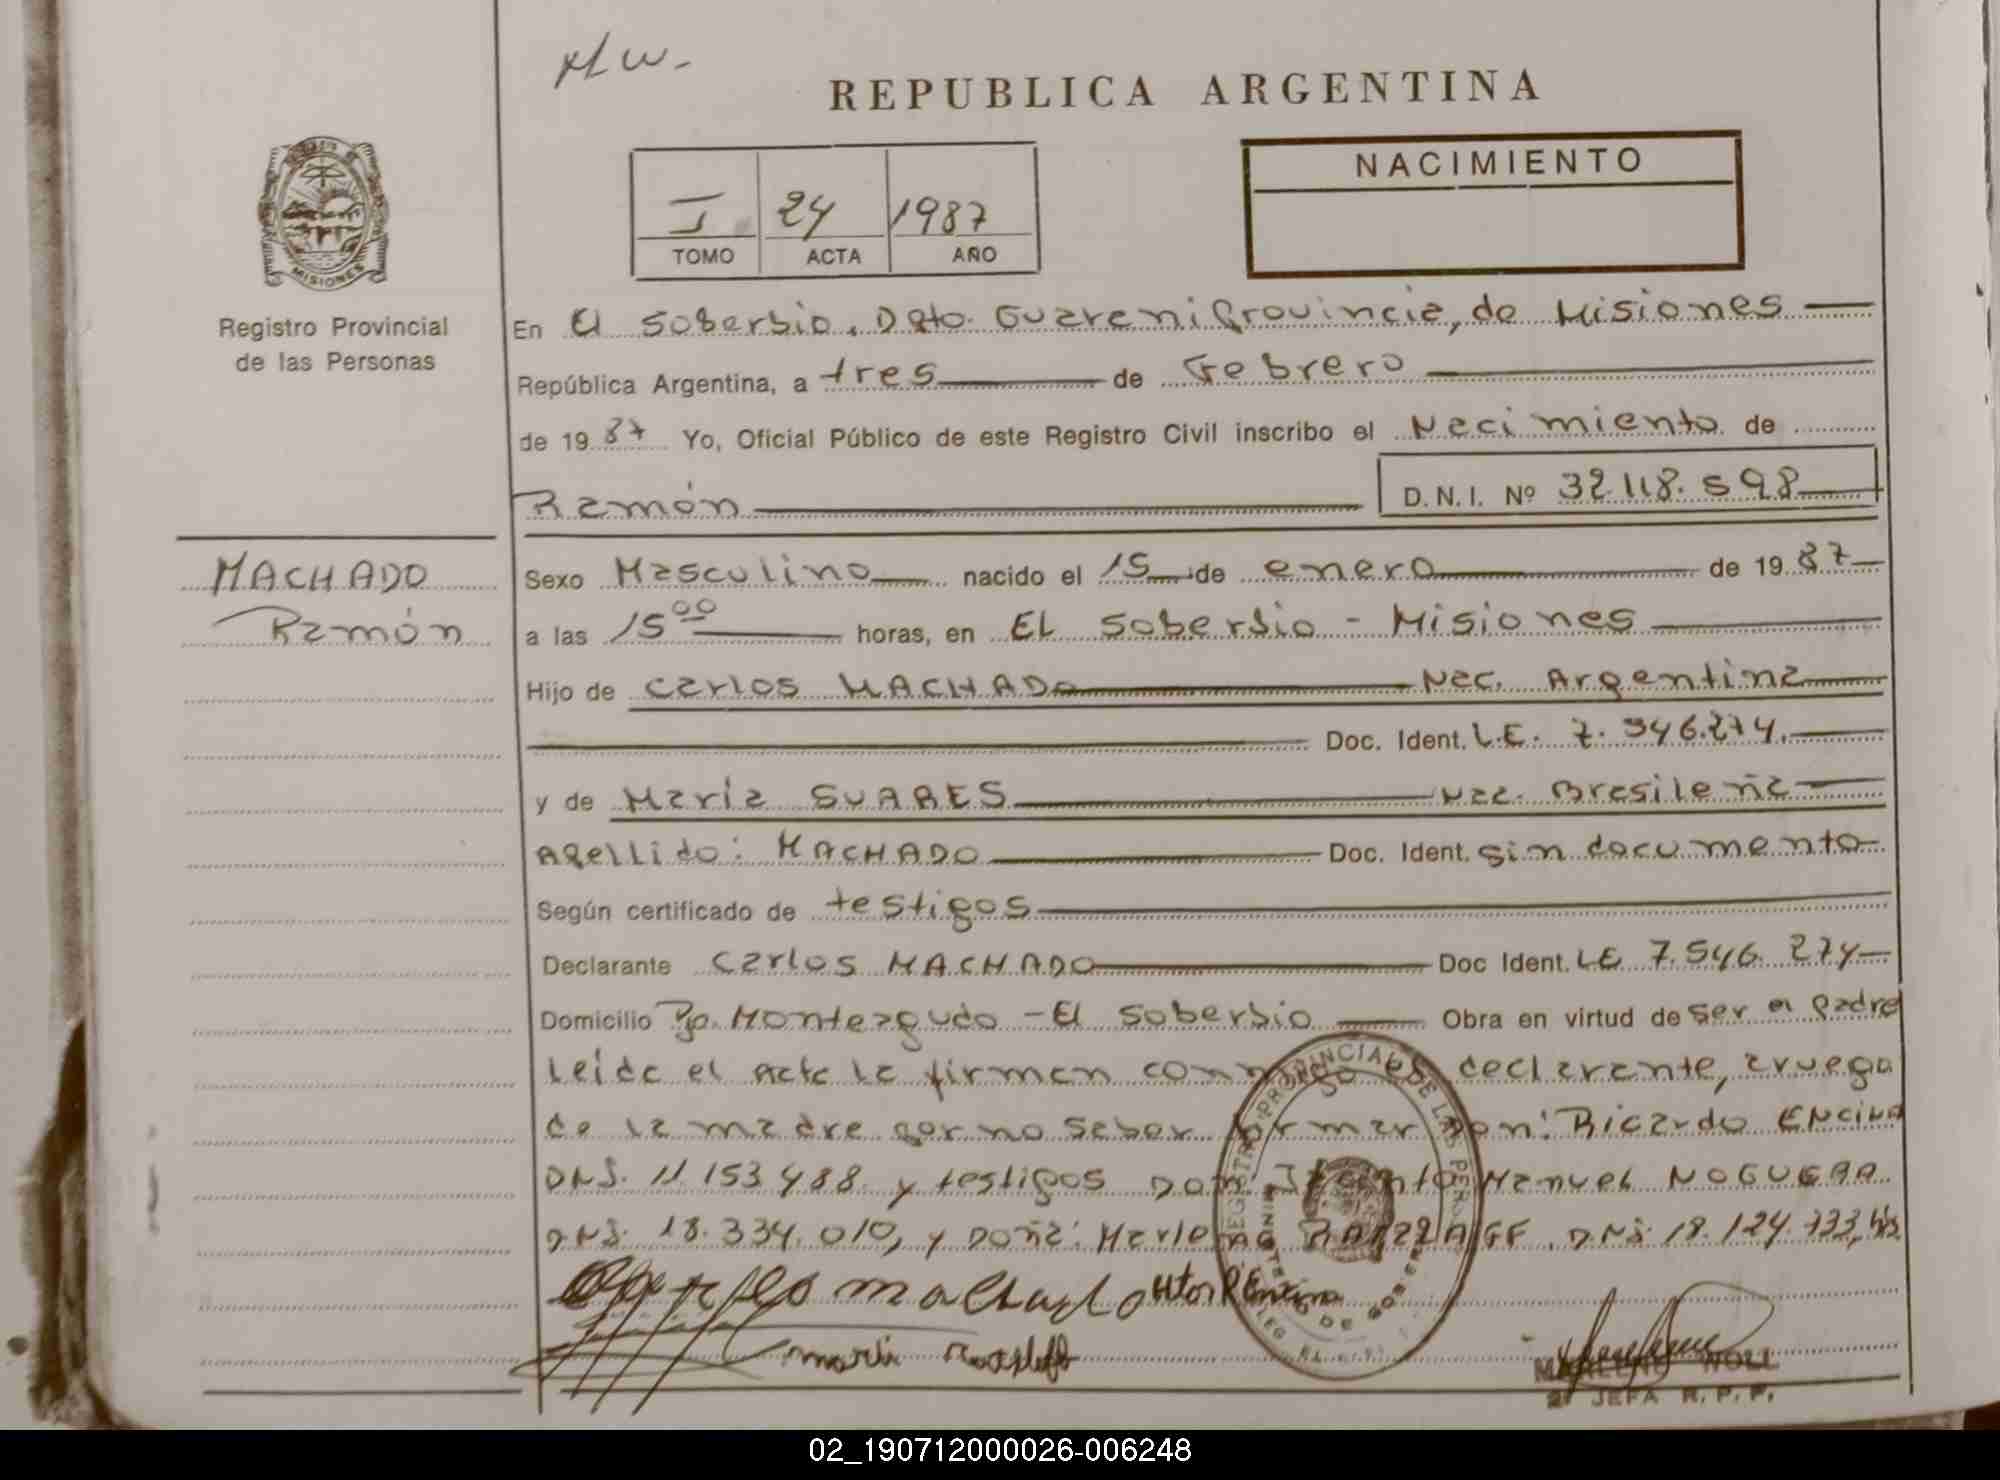 H W.
REPUBLICA ARGENTINA
NACIMIENTO
I 24 1987
TOMO ACTA AÑO
MISIONES
Registro Provincial
de las Personas
En El Soberbio, Dpto. Guarani Provincia, de Misiones
República Argentina, a tres de Febrero
de 19 87 Yo, Oficial Público de este Registro Civil inscribo el Nacimiento de
Ramón D.N.I. Nº 32.118.598
MACHADO
Ramón
Sexo Masculino nacido el 15 de enero de 19 87
a las 15 00 horas, en EL Soberbio - Misiones
Hijo de Carlos MACHADO Nac. Argentina
Doc. Ident. L.E. 7.546.274.
y de María SUARES Nac. Brasileña
Apellido: MACHADO Doc. Ident. sin documento
Según certificado de testigos
Declarante Carlos MACHADO Doc Ident. LE 7.546.274
Domicilio Pje. Monteagudo - El Soberbio Obra en virtud de ser el padre
Leída el acta la firman conmigo el declarante, a ruego
de la madre por no saber firmar Don: Ricardo ENCINA
DNI. 11.153.488 y testigos Don: Manuel NOGUERA
DNI. 18.334.010, y Doña: DNI 18.124.733,
REGISTRO PROVINCIAL DE LAS PERS
MINISTERIO DE GOBER
machado
maria
WOLL
JEFA R. P. P.
02_190712000026-006248